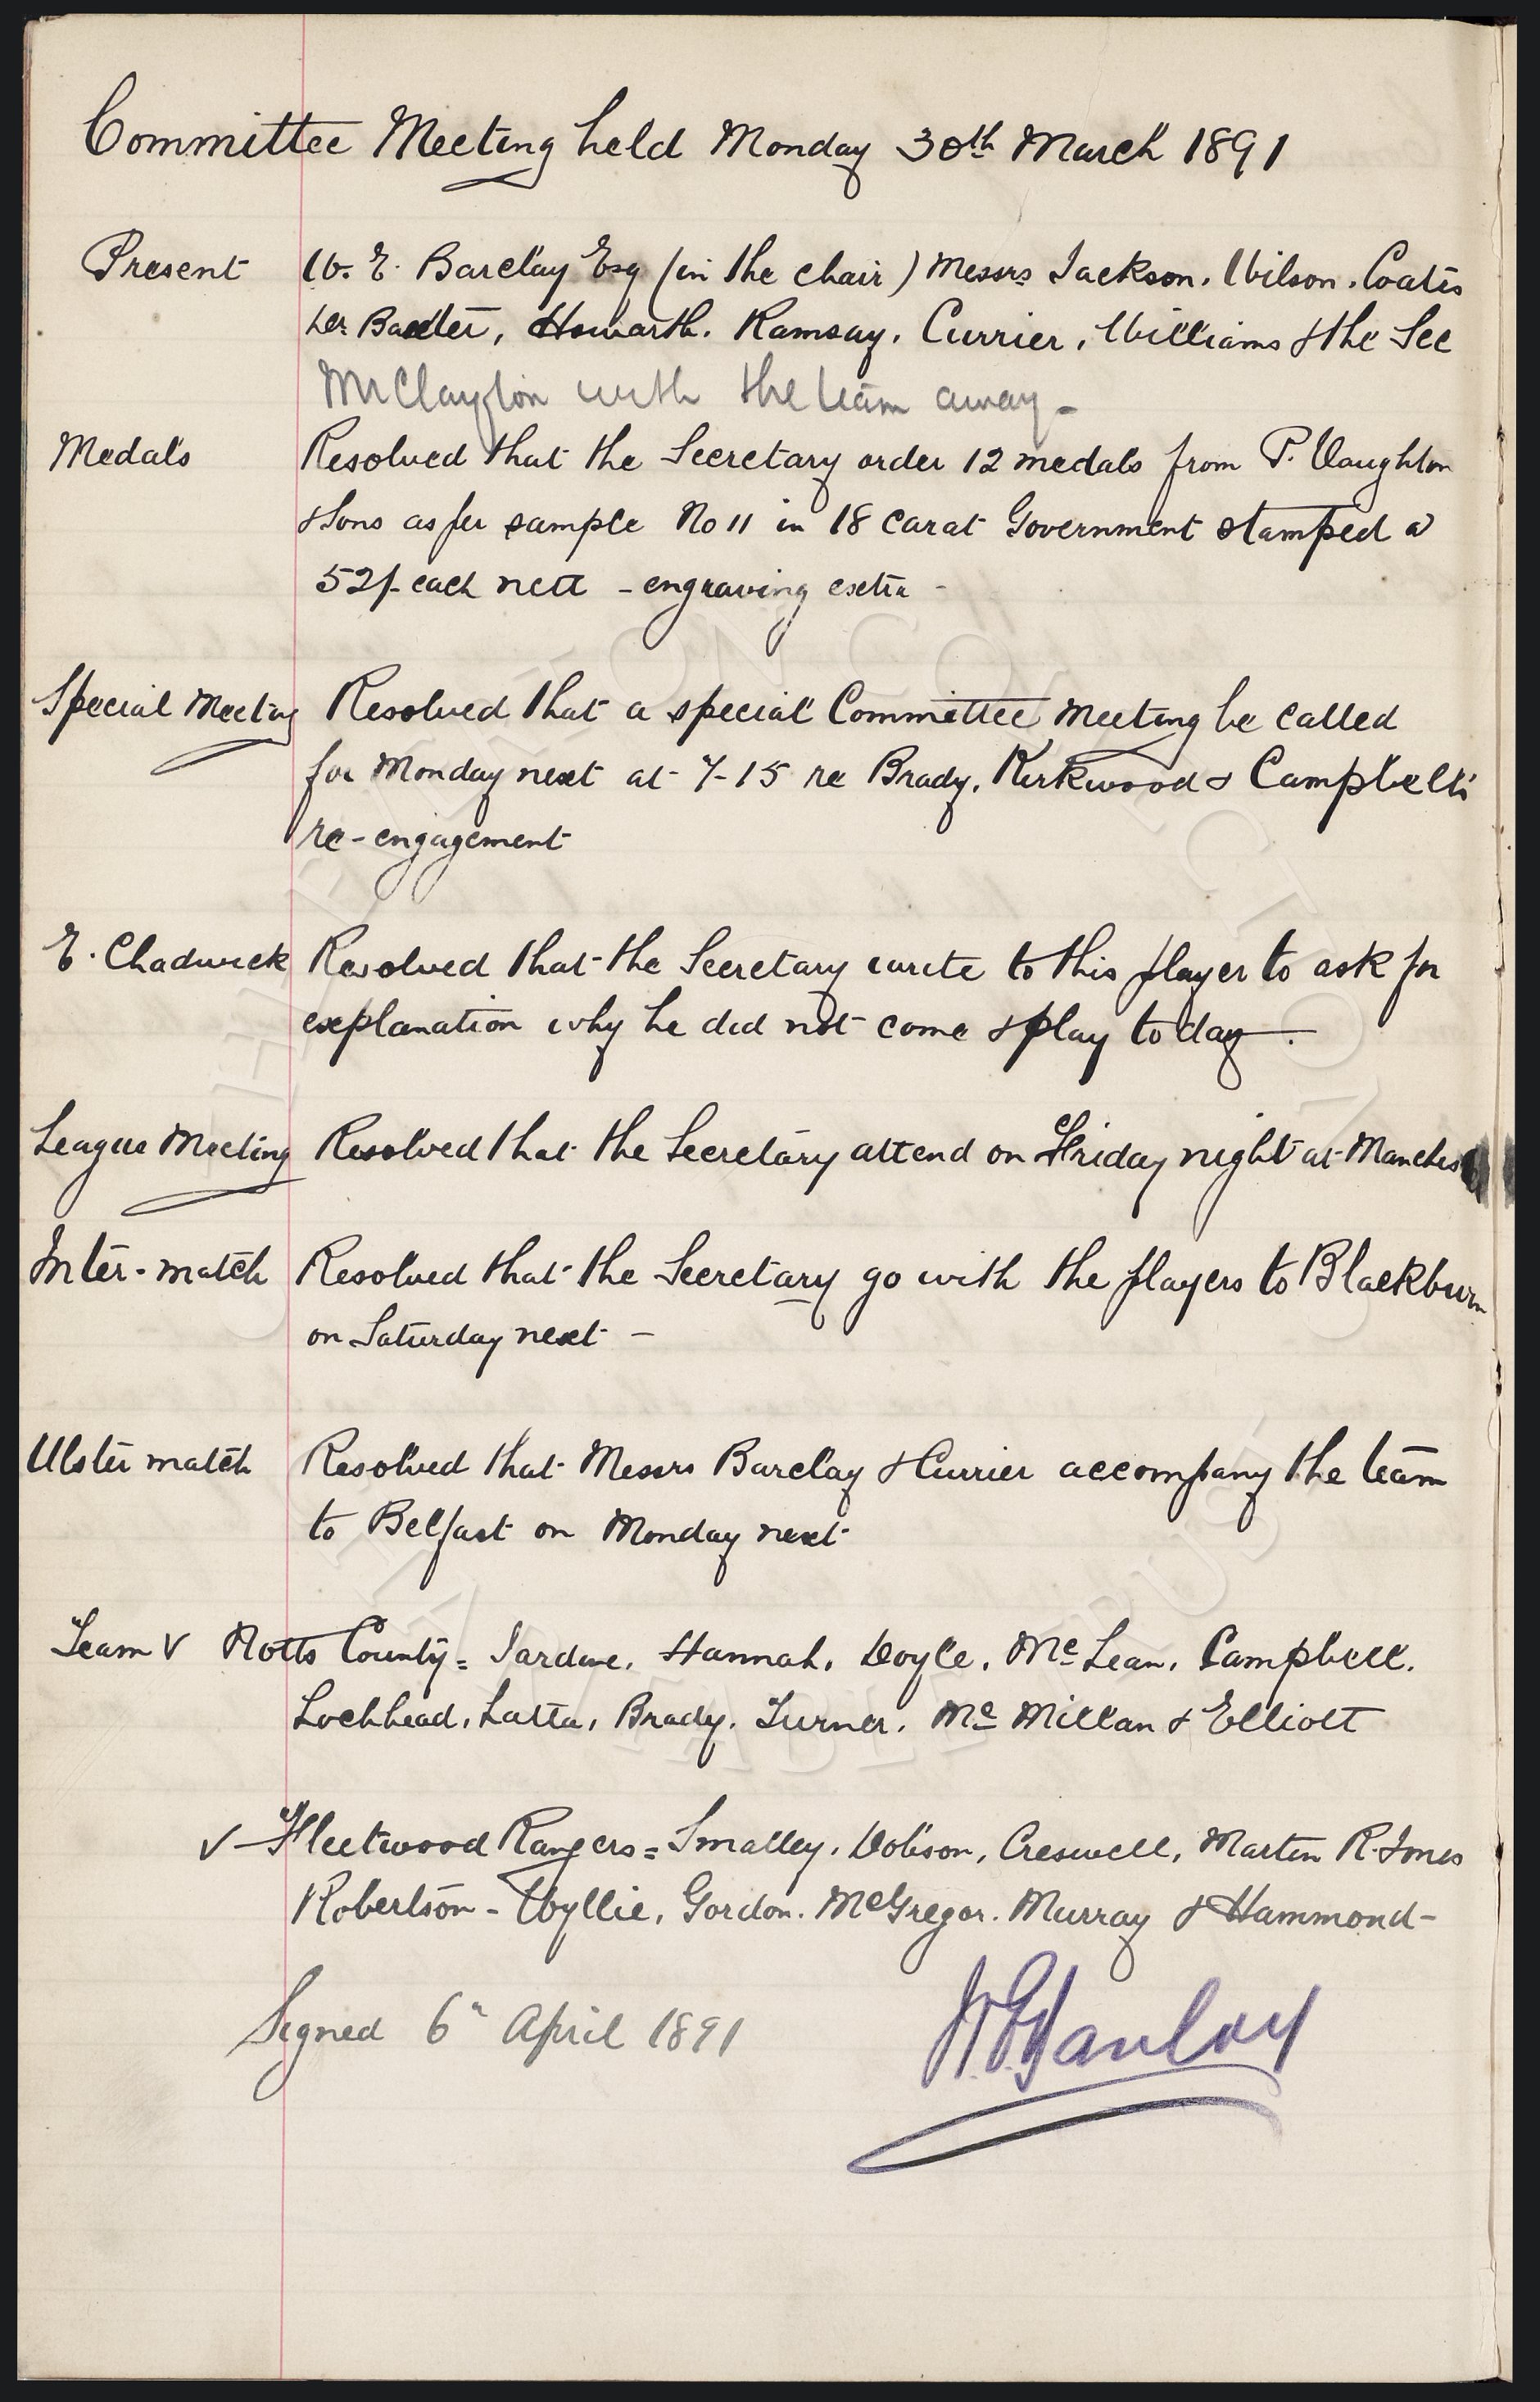 Committee Meeting held Monday 30th March 1891
Present W. E. Barclay Esq (in the chair) Messrs Jackson, Wilson, Coates
Dr Baxter, Howarth, Ramsay, Currier, Williams & the Sec
Mr Clayton with the team away -
Medals Resolved that the Secretary order 12 medals from P. Vaughton
& Sons as per sample No 11 in 18 carat Government stamped a
52/- each nett - engraving extra -
Special Meeting Resolved that a special Committee Meeting be called
for Monday next at 7-15 re Brady, Kirkwood & Campbell's
re-engagement
E. Chadwick Resolved that the Secretary write to this player to ask for
explanation why he did not come & play to day.
League Meeting Resolved that the Secretary attend on Friday night at Manches
Inter-match Resolved that the Secretary go with the players to Blackburn
on Saturday next -
Ulster match Resolved that Messrs Barclay & Currier accompany the team
to Belfast on Monday next
Team v Notts County = Jardine, Hannah, Doyle, McLean, Campbell,
Lochhead, Latta, Brady, Turner, McMillan & Elliott
v Fleetwood Rangers = Smalley, Dobson, Creswell, Martin R. Jones
Robertson - Wyllie, Gordon, McGregor, Murray & Hammond -
Signed 6th April 1891